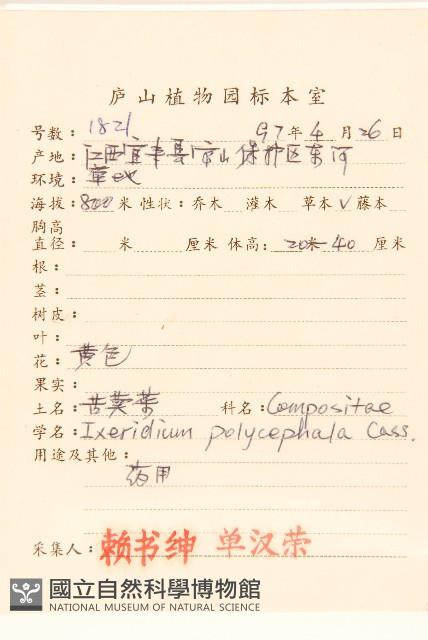 庐山植物园标本室
号数：1821 97年4月26日
产地：江西宜丰县官山保护区东河
环境：草地
海拔：800米 性状：乔木 灌木 草本√藤本
胸高
直径： 米 厘米 体高：20米 40 厘米
根：
茎：
树皮：
叶：
花：黄色
果实：
土名：苦荬菜 科名：Compositae
学名：Ixeridium polycephala Cass.
用途及其他：
药用
采集人：赖书绅 单汉荣
國立自然科學博物館
NATIONAL MUSEUM OF NATURAL SCIENCE